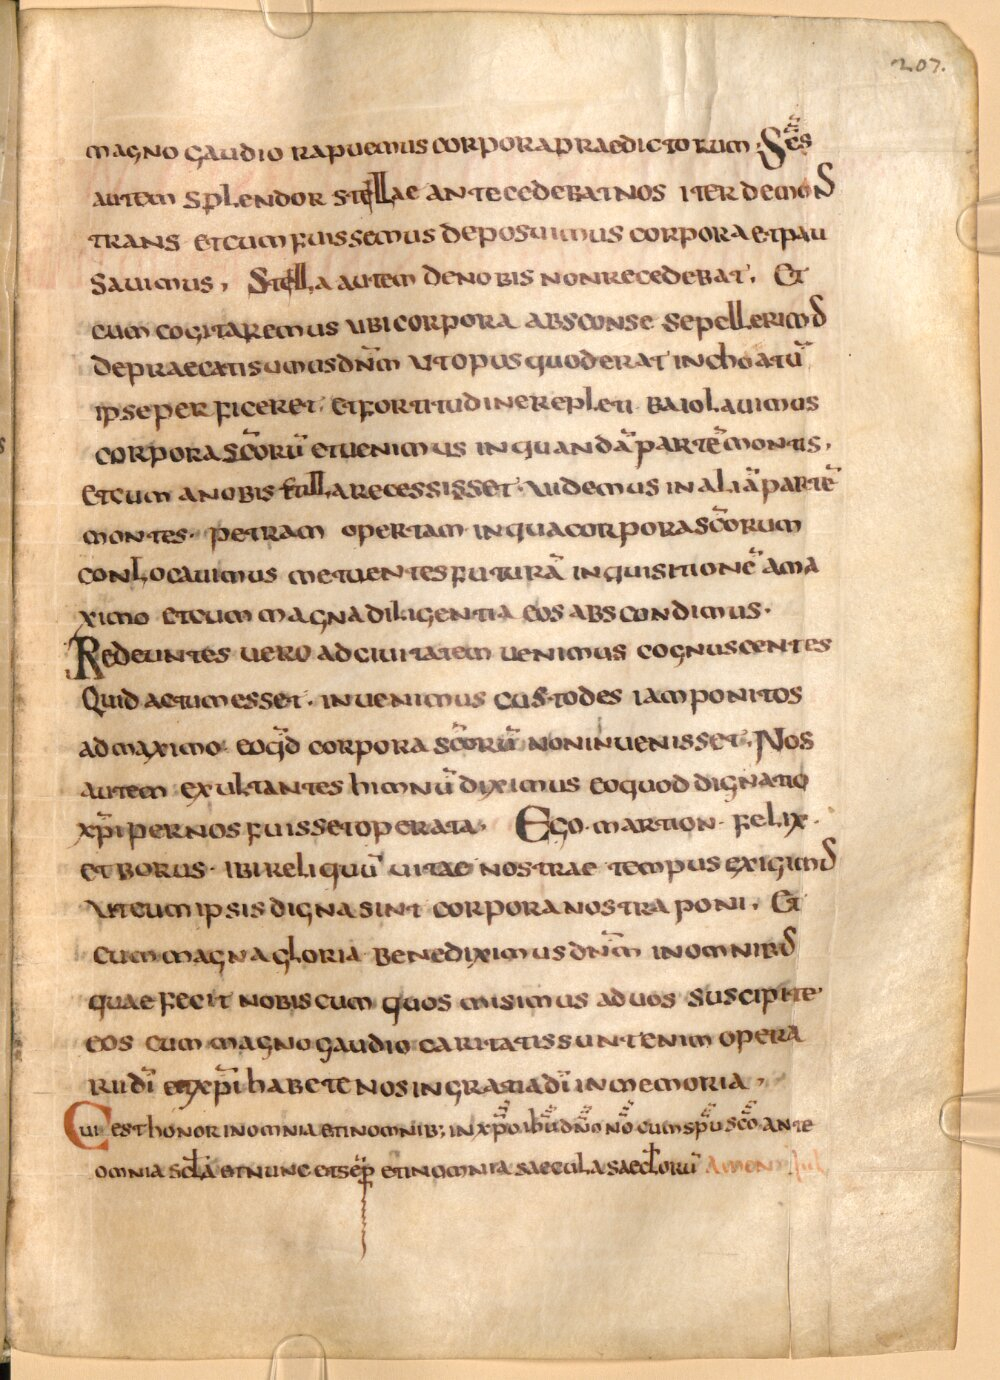 207.
magno gaudio rapuemus corpora praedictorum. Sẽs
autem splendor stellae antecedebat nos iter demonS
trans et cum fuissemus deposuimus corpora et pau
sauimus, Stella autem de nobis non recedebat, Et
cum cogitaremus ubi corpora absconse sepellerimS
depraecati sumus dn̄m ut opus quod erat inchoatū
ipse perficeret. et fortitudine repleti baiolauimus
corpora sc̄orū et uenimus in quandā partē montis,
et cum a nobis stella recessisset. uidemus in aliā partē
montes. petram opertam in qua corpora sc̄orum
conlocauimus metuentes futurā inquisitionē a ma
ximo et cum magna diligentia eos abscondimus.
Redeuntes uero ad ciuitatem uenimus cognuscentes
quid actum esset. inuenimus custodes iam ponitos
ad maximo eo qd̄ corpora sc̄orū non inuenisset. Nos
autem exultantes himnū diximus eo quod dignatio
xp̄i per nos fuisset operata. Ego. martion. felix.
et borus. ibi reliquū uitae nostrae tempus exigimS
ut cum ipsis digna sint corpora nostra poni, Et
cum magna gloria benediximus dn̄m in omnibS
quae fecit nobiscum quos misimus ad uos suscipite
eos cum magno gaudio caritatis sunt enim opera
rii dī et xp̄i habete nos in gratia dī in memoria,
Cui est honor in omnia et in omnib; in xp̄o ihū dn̄o nō cum sp̄u sc̄o ante
omnia sc̄la et nunc et sēp et in omnia saecula saeclorū amen